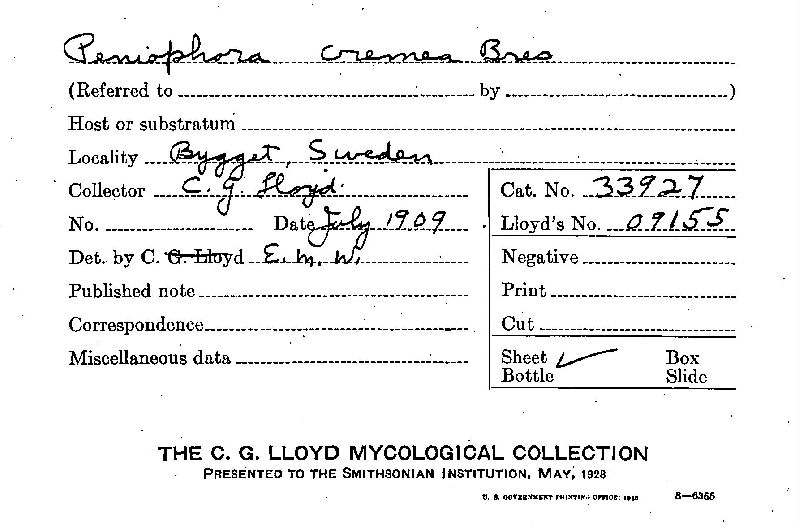 Peniophora cremea Bres
(Referred to by )
Host or substratum
Locality Bygget, Sweden
Collector C. G. Lloyd.
Cat. No. 33927
No. Date July 1909
Lloyd's No. 09155
Det. by C. G. Lloyd E. M. W.
Negative
Published note
Print
Correspondence
Cut
Miscellaneous data
Sheet ✓ Box
Bottle Slide
THE C. G. LLOYD MYCOLOGICAL COLLECTION
PRESENTED TO THE SMITHSONIAN INSTITUTION, MAY, 1928
U. S. GOVERNMENT PRINTING OFFICE: 8—6365